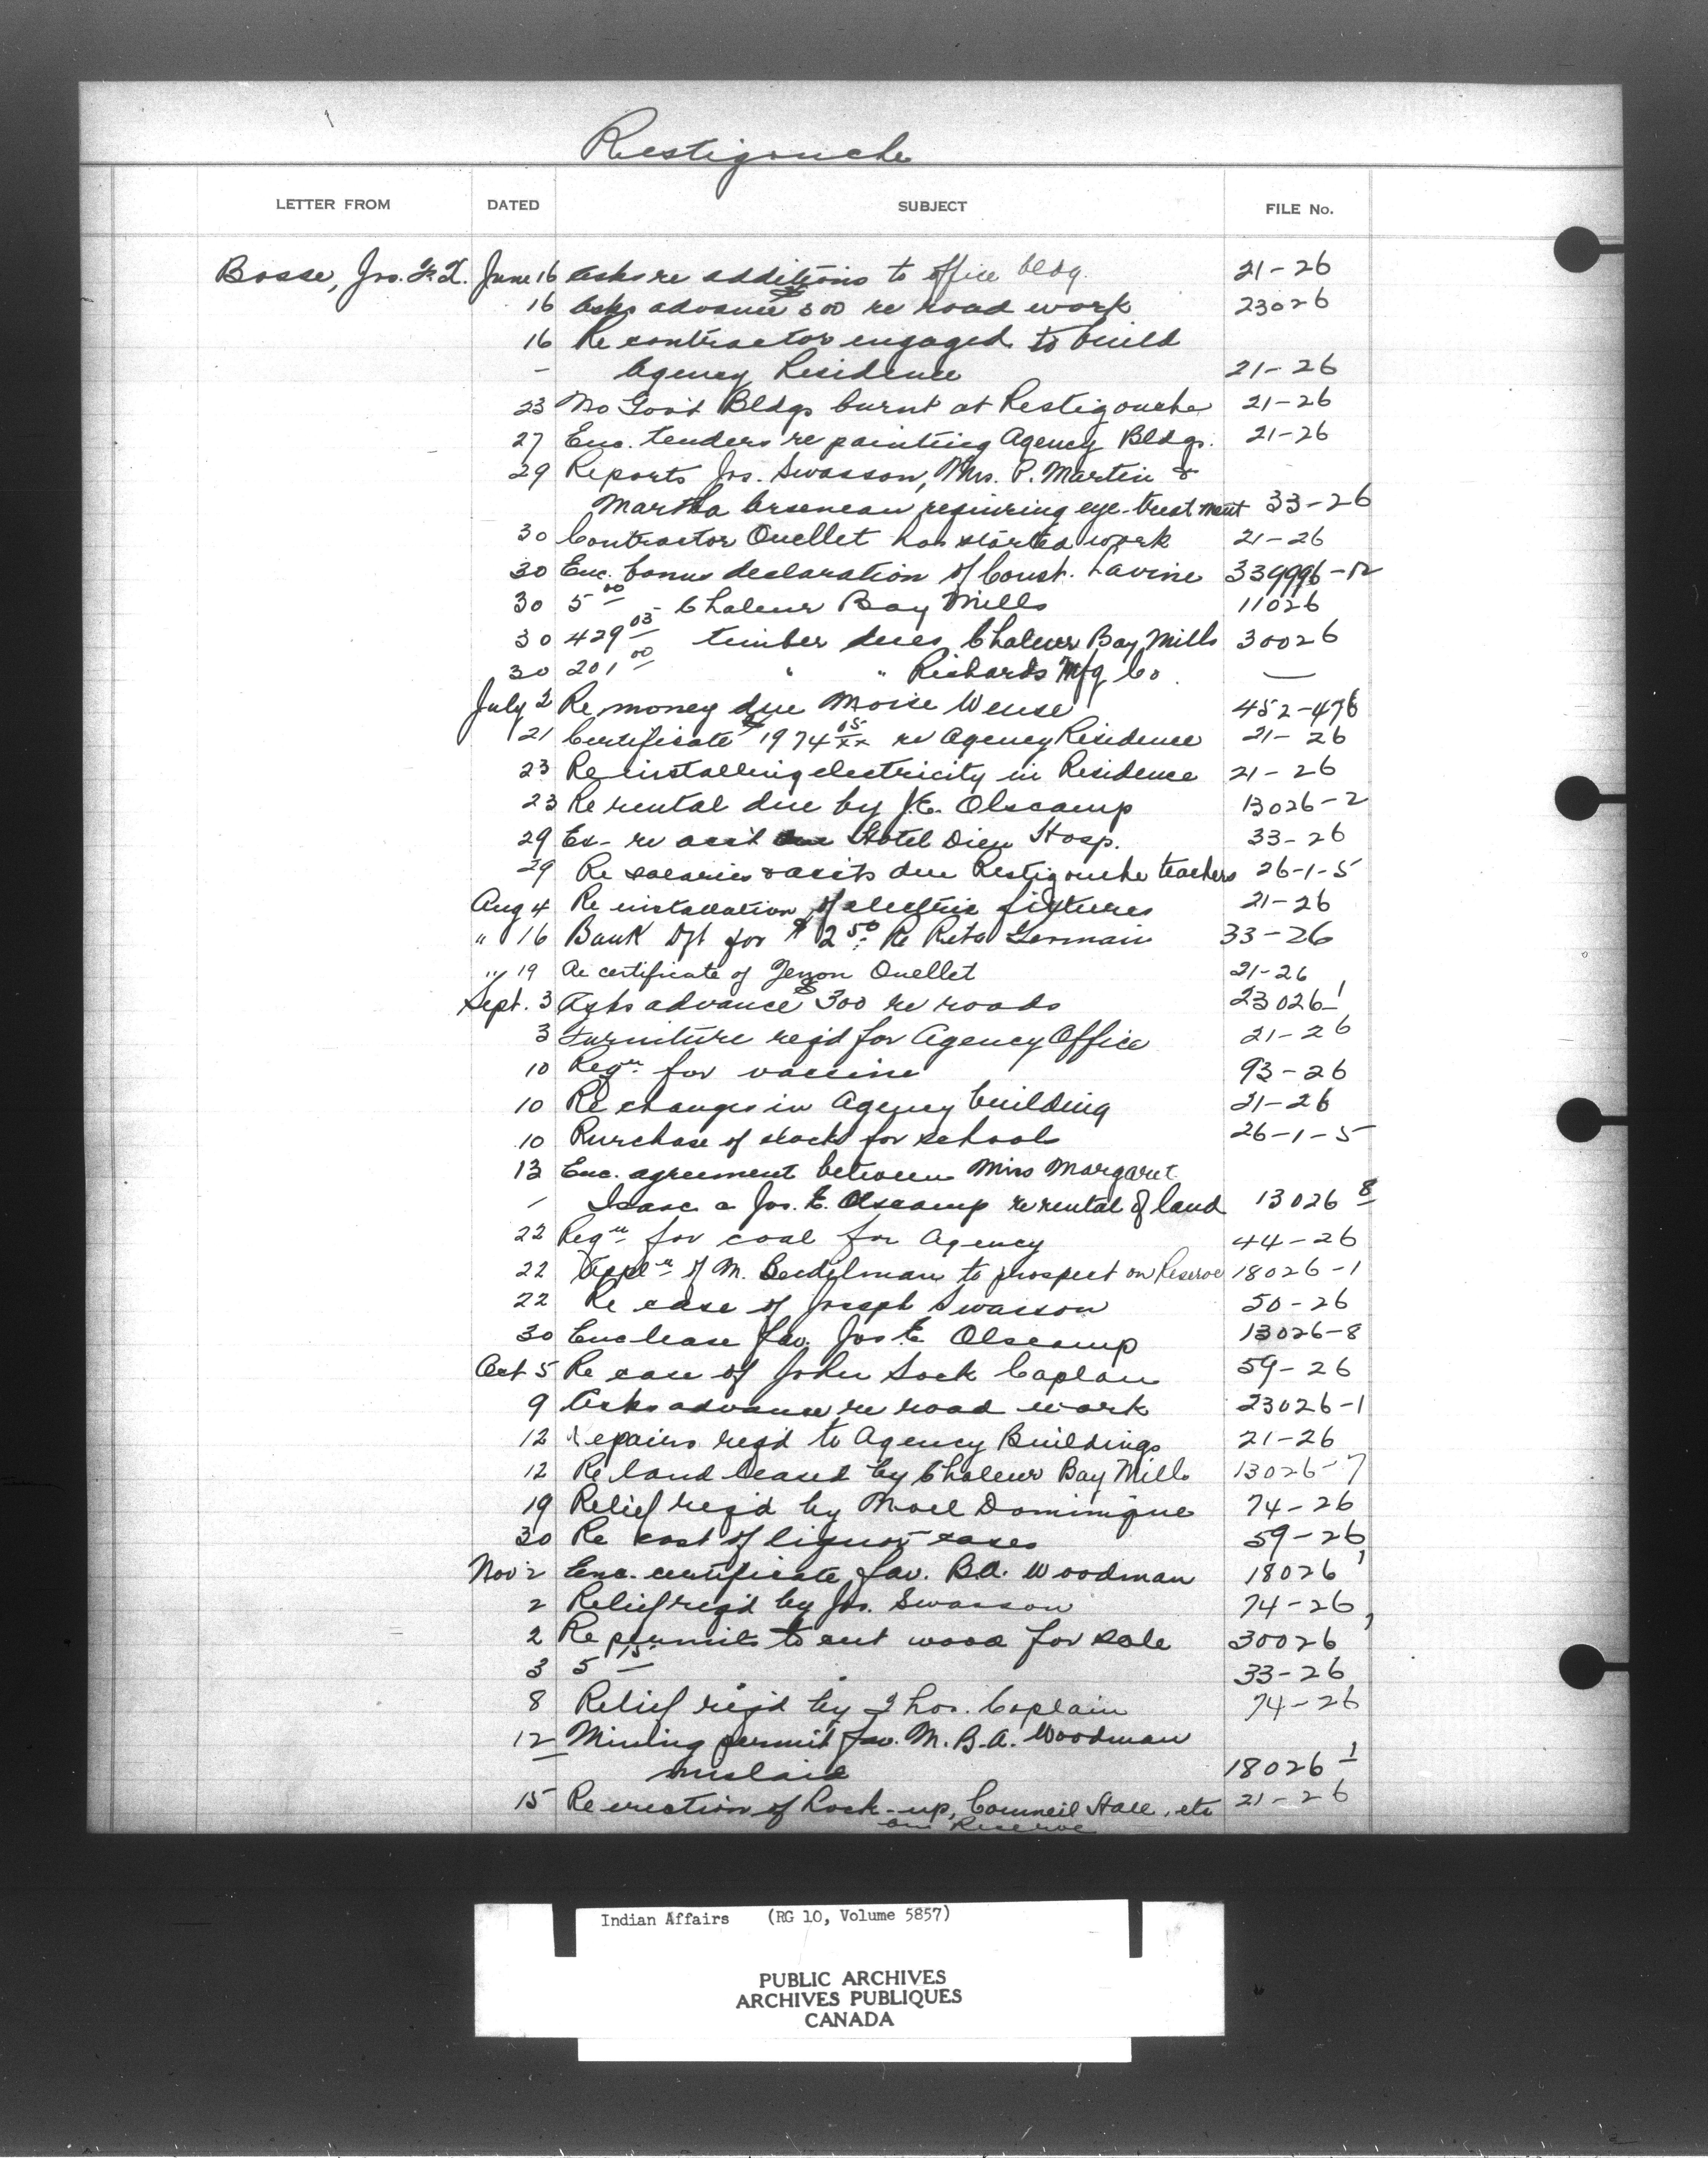 Restigouche
LETTER FROM DATED SUBJECT FILE No.
Bosse, Jos. June 16 Asks re additions to office bldg. 21-26
16 Asks advance $300 re road work 23026
16 Re contractor engaged to build
- Agency Residence 21-26
23 No Gov't Bldgs burnt at Restigouche 21-26
27 Enc. tenders re painting Agency Bldgs. 21-26
29 Reports Jos. Swasson, Mrs. P. Martin &
Martha Arseneau requiring eye-treatment 33-26
30 Contractor Ouellet has started work 21-26
30 Enc. bonus declaration of Const. Lavine
30 5 00 - Chaleur Bay Mills 11026
30 429 03 timber dues Chaleur Bay Mills 30026
30 201 00 " " Richards Mfg Co. —
July 2 Re money due Moise Weuse 452-476
21 Certificate $1974 05/xx re Agency Residence 21-26
23 Re installing electricity in Residence 21-26
23 Re rental due by J.E. Olscamp 13026-2
29 Ex- re acc't Hotel Dieu Hosp. 33-26
29 Re salaries & acc'ts due Restigouche teachers 26-1-5
Aug 4 Re installation of electric fixtures 21-26
" 16 Bank Dft for $2 50 Re Reta Germain 33-26
" 19 Re certificate of Zenon Ouellet 21-26
Sept. 3 Asks advance $300 re roads 23026-1
3 Furniture req'd for Agency Office 21-26
10 Reqn. for vaccine 93-26
10 Re changes in Agency building 21-26
10 Purchase of stock for schools 26-1-5
13 Enc. agreement between Miss Margaret
- Isaac & Jos. E. Olscamp re rental of land 13026-8
22 Reqn. for coal for Agency 44-26
22 Appln of M. Beidelman to prospect on Reserve 18026-1
22 Re case of Joseph Swasson 50-26
30 Enc lease fav. Jos E. Olscamp 13026-8
Oct 5 Re case of John Sock Caplan 59-26
9 Asks advance re road work 23026-1
12 repairs req'd to Agency Buildings 21-26
12 Re land leased by Chaleur Bay Mills 13026-7
19 Relief req'd by Noel Dominique 74-26
30 Re cost of liquor cases 59-26
Nov 2 Enc. certificate fav. B.A. Woodman 18026-1
2 Relief req'd by Jos. Swasson 74-26
2 Re permits to cut wood for sale 30026-1
3 5 15 33-26
8 Relief req'd by Thos. Caplain 74-26
12 Mining permit fav. M. B.A. Woodman
- mislaid 18026-1
15 Re erection of Lock-up, Council Hall, etc 21-26
on Reserve
Indian Affairs (RG 10, Volume 5857)
PUBLIC ARCHIVES
ARCHIVES PUBLIQUES
CANADA